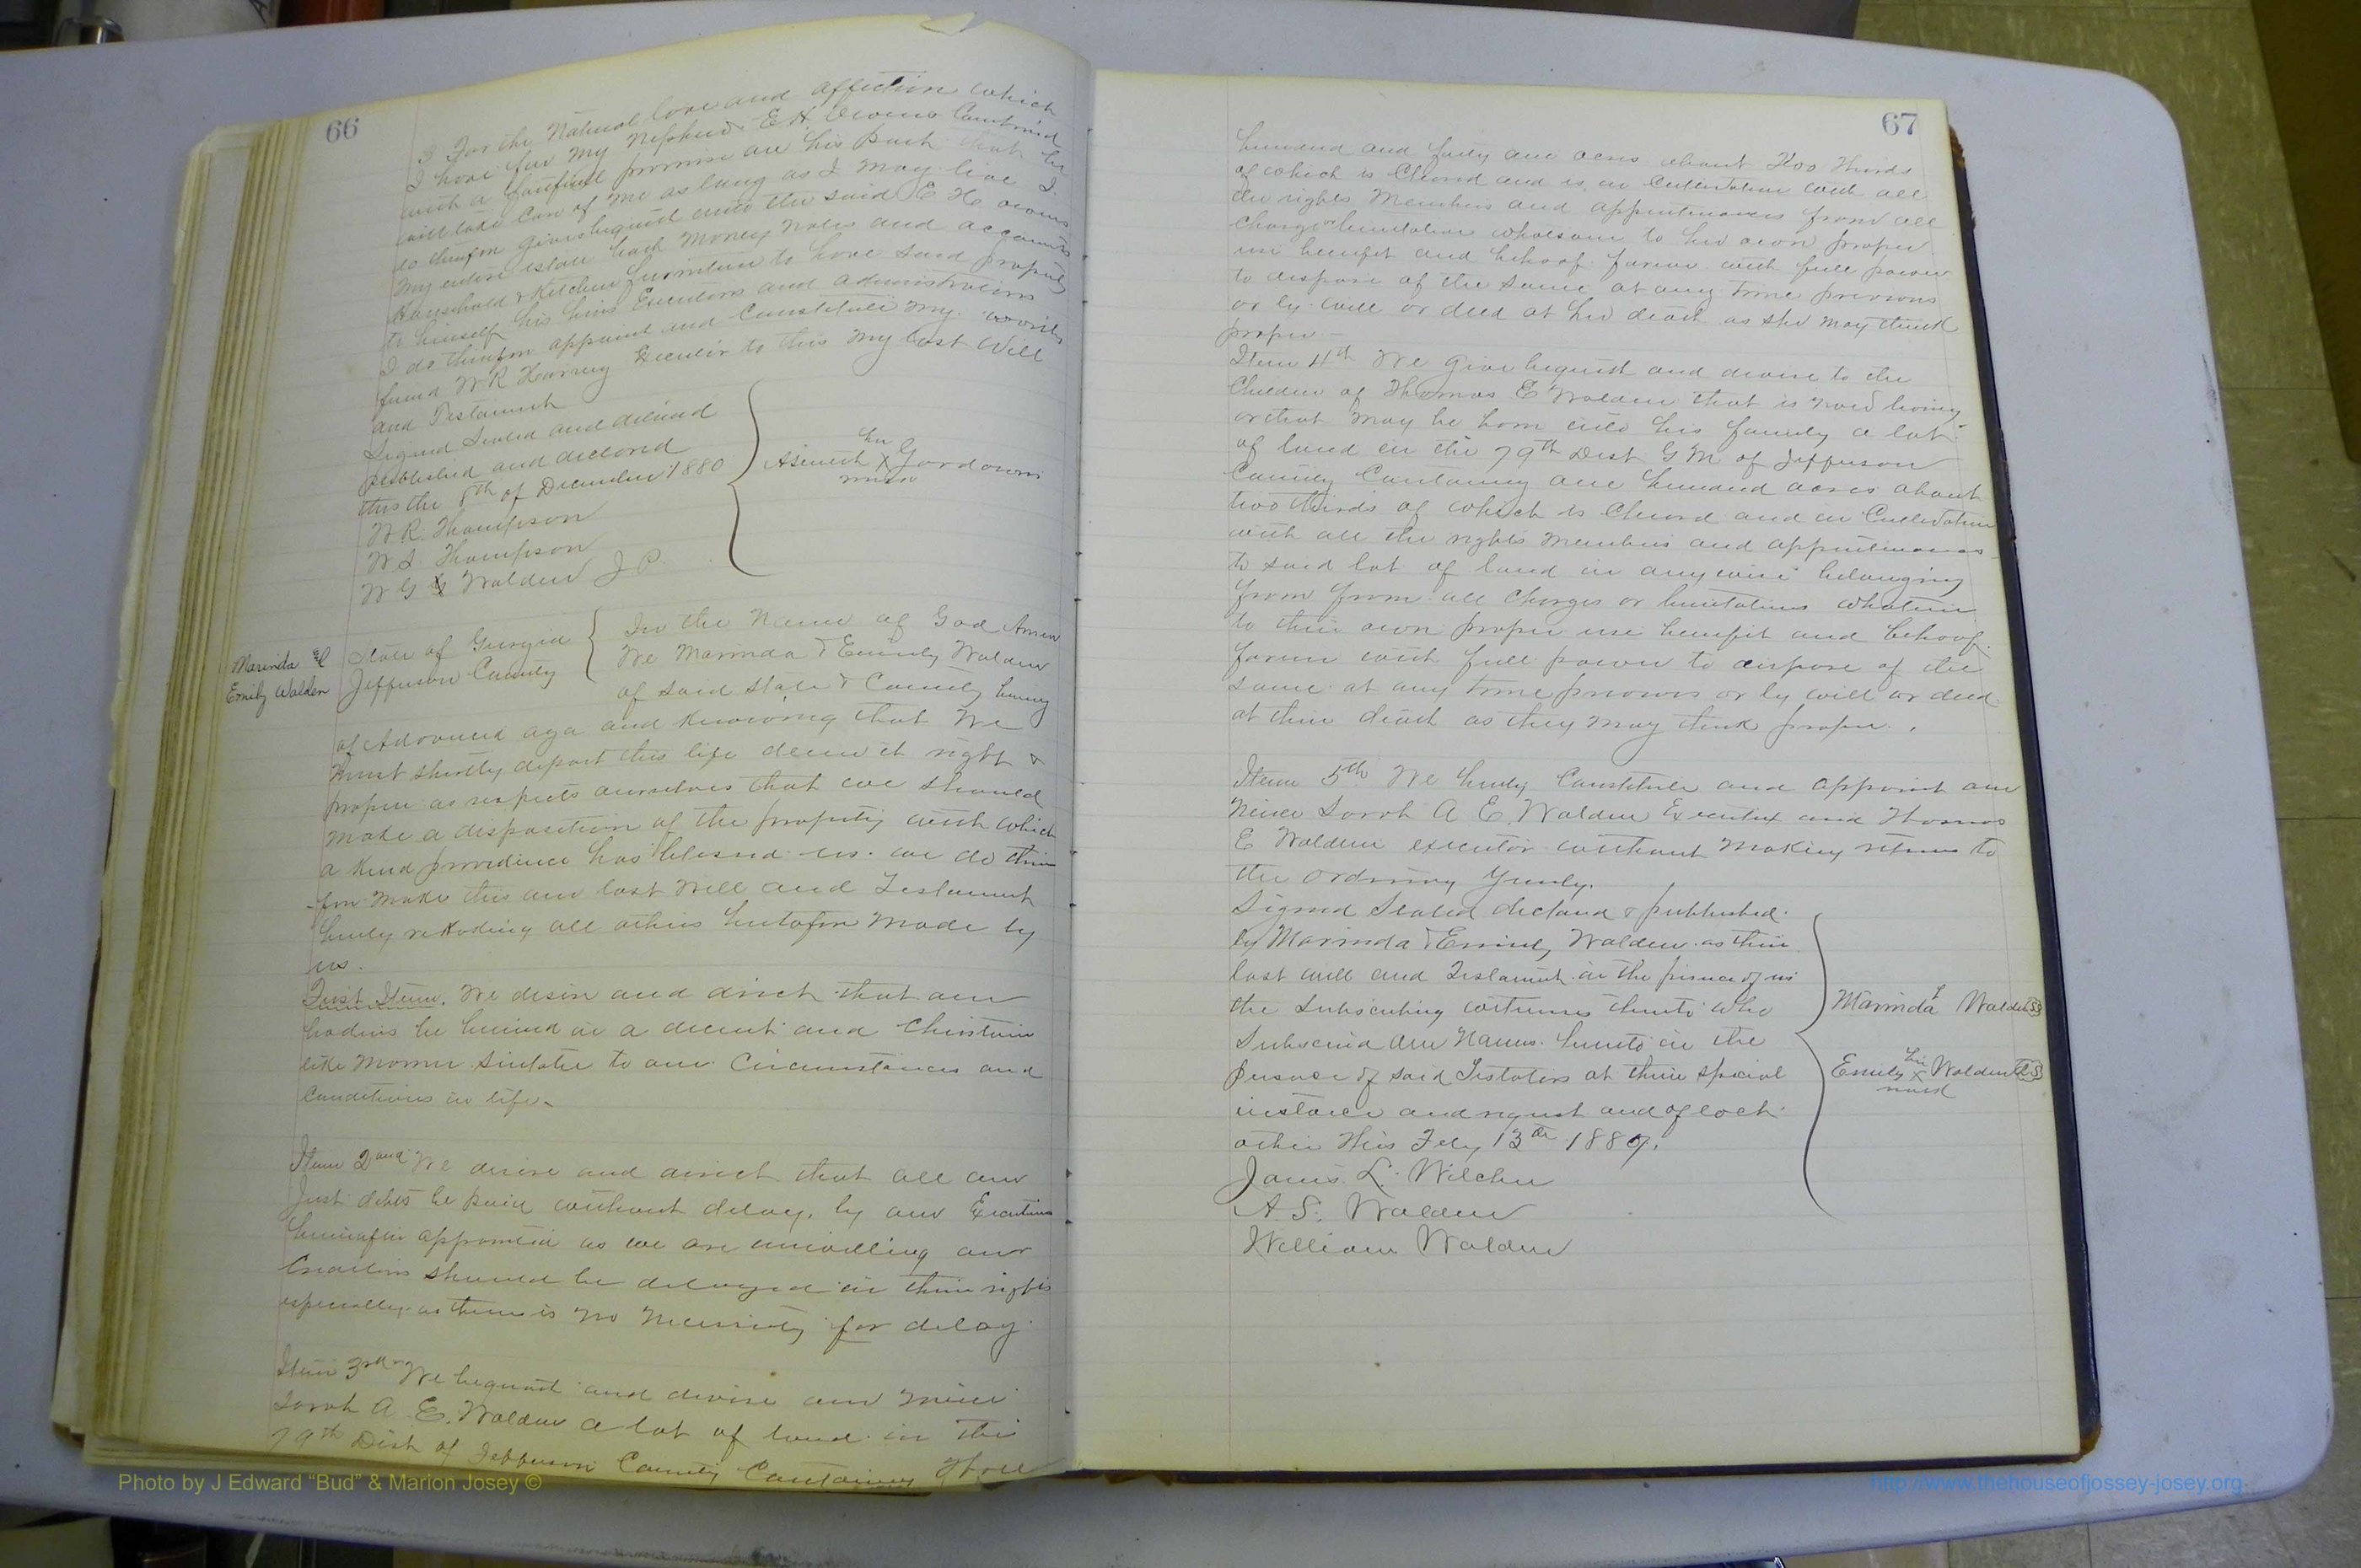 66
3 For the Natural love and affection which
I have for my Nephew E H Owens Combined
with a faithful promise on his part that he
will take Care of me as long as I may live I
do therefore give & bequeath unto the said E H Owens
my entire estate both money notes and accounts
Household & Kitchen furniture to have said property
to himself his heirs Executors and administrators
I do therefore appoint and Constitute my worthy
friend W R Executor to this my last Will
and Testament
Signed Sealed and delivered
published and declared
this the 8th of December 1880
her
Aseneth X Gordown
mark
W. R. Thompson
W. S. Thompson
W G Walden J P.
Marinda &
Emily Walden
State of Georgia
Jefferson County
In the Name of God Amen
We Marinda & Emily Walden
of said State & County being
of Advanced age and Knowing that We
Must shortly depart this life deem it right &
proper as respects ourselves that we should
make a disposition of the property with which
a kind providence has blessed us. we do there
-fore make this our last Will and Testament
hereby revoking all others heretofore made by
us.
First Item. We desire and direct that our
bodies be buried in a decent and Christian
like manner suitable to our Circumstances and
Conditions in life.
Item 2nd We desire and direct that all our
Just debts be paid without delay, by our Executors
hereinafter appointed as we are unwilling our
Creditors should be delayed in their rights
especially as there is no necessity for delay.
Item 3rd We bequeath and devise our niece
Sarah A. E. Walden a lot of land in the
79th Dist of Jefferson County Containing three
Photo by J Edward “Bud” & Marion Josey ©
67
hundred and forty one acres about two thirds
of which is Cleared and is in Cultivation with all
the rights Members and appurtenances from all
Charge or limitation whatsoever to her own proper
use benefit and behoof forever with full power
to dispose of the same at any time previous
or by will or deed at her death as she may think
proper
Item 4th We give bequeath and devise to the
Children of Thomas E Walden that is now living
or that may be born into his family a lot
of land in the 79th Dist G M of Jefferson
County Containing one hundred acres about
two thirds of which is Cleared and in Cultivation
with all the rights members and appurtenances
to said lot of land in any wise belonging
from from all charges or limitations whatever
to their own proper use benefit and behoof
forever with full power to dispose of the
same at any time previous or by will or deed
at their death as they may think proper.
Item 5th We hereby Constitute and appoint our
Niece Sarah A E. Walden Executrix and Thomas
E Walden executor without making returns to
the ordinary yearly.
Signed Sealed declared & published
by Marinda & Emily Walden as their
last will and Testament in the presence of us
the subscribing witnesses thereto who
Subscribed our Names hereto in the
presence of said Testators at their special
instance and request and of each
other this Feby 13th 1887.
Marinda Walden LS
her
Emily X Walden LS
mark
James L. Wilcher
A. S. Walden
William Walden
http://www.thehouseofjossey-josey.org